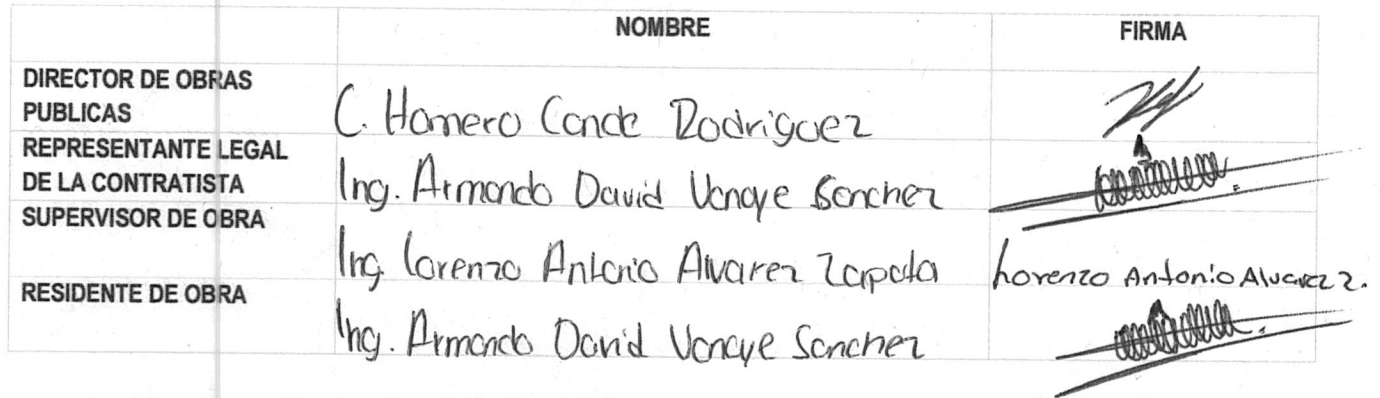 NOMBRE FIRMA
DIRECTOR DE OBRAS
PUBLICAS
C. Homero Conde Rodriguez
REPRESENTANTE LEGAL
DE LA CONTRATISTA
Ing. Armando David Vanoye Sanchez
SUPERVISOR DE OBRA
Ing. Lorenzo Antonio Alvarez Zapata Lorenzo Antonio Alvarez Z.
RESIDENTE DE OBRA
Ing. Armando David Vanoye Sanchez